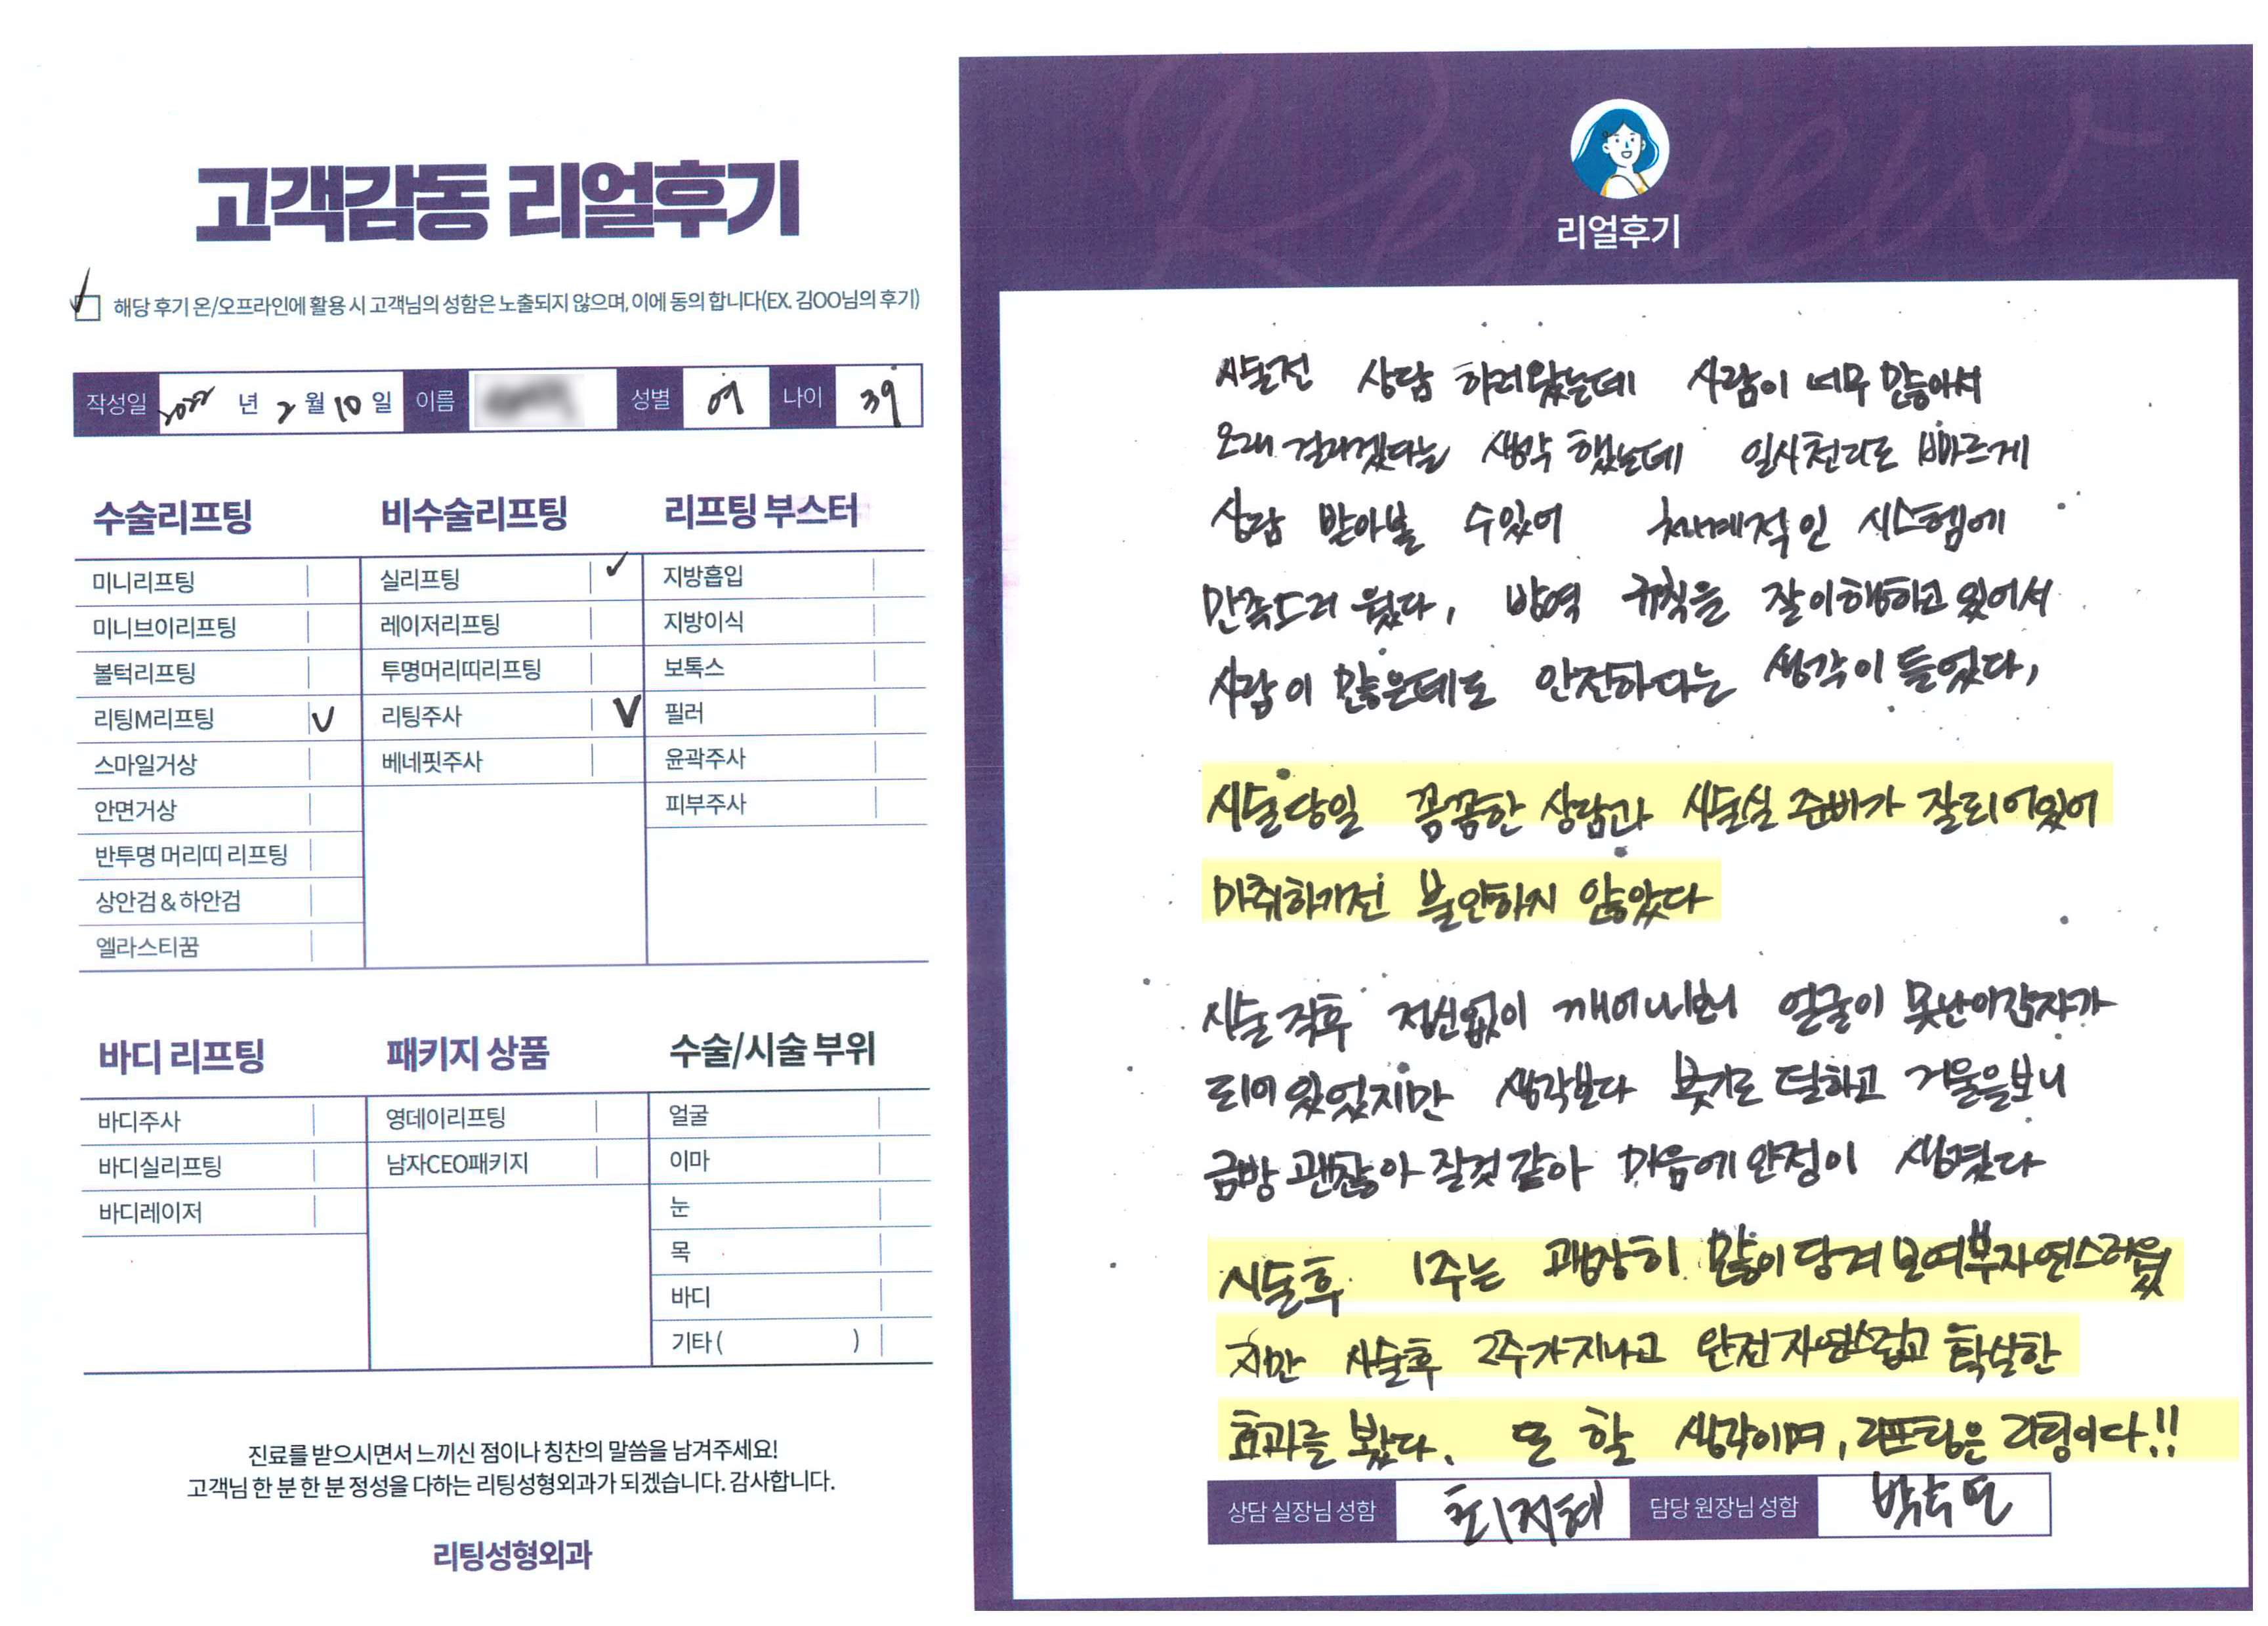 고객감동 리얼후기
해당 후기 온/오프라인에 활용 시 고객님의 성함은 노출되지 않으며, 이에 동의 합니다(EX. 김OO님의 후기)
작성일 2022 년 2 월 10 일 이름 성별 여 나이 39
수술리프팅
미니리프팅
미니브이리프팅
볼턱리프팅
리팅M리프팅 V
스마일거상
안면거상
반투명 머리띠 리프팅
상안검 & 하안검
엘라스티꿈
비수술리프팅
실리프팅 ✓
레이저리프팅
투명머리띠리프팅
리팅주사 V
베네핏주사
리프팅 부스터
지방흡입
지방이식
보톡스
필러
윤곽주사
피부주사
바디 리프팅
바디주사
바디실리프팅
바디레이저
패키지 상품
영데이리프팅
남자CEO패키지
수술/시술 부위
얼굴
이마
눈
목
바디
기타 ( )
진료를 받으시면서 느끼신 점이나 칭찬의 말씀을 남겨주세요!
고객님 한 분 한 분 정성을 다하는 리팅성형외과가 되겠습니다. 감사합니다.
리팅성형외과
Review
리얼후기
시술전 상담 하러왔는데 사람이 너무 많아서
오래 걸리겠다는 생각 했는데 일사천리로 빠르게
상담 받아볼 수있어 체계적인 시스템에
만족스러 웠다, 방역 규칙을 잘 이행하고 있어서
사람이 많은데도 안전하다는 생각이 들었다,
시술당일 꼼꼼한 상담과 시술실 준비가 잘되어있어
마취하기전 불안하지 않았다
시술 직후 정신없이 깨어나보니 얼굴이 못난이감자가
되어 있었지만 생각보다 붓기도 덜하고 거울을보니
금방 괜찮아 질것 같아 마음에 안정이 생겼다
시술후 1주는 굉장히 많이 당겨 보여 부자연스러웠
지만 시술후 2주가 지나고 완전 자연스럽고 확실한
효과를 봤다. 또 할 생각이며, 리프팅은 리팅이다!!
상담 실장님 성함 최지혜 담당 원장님 성함